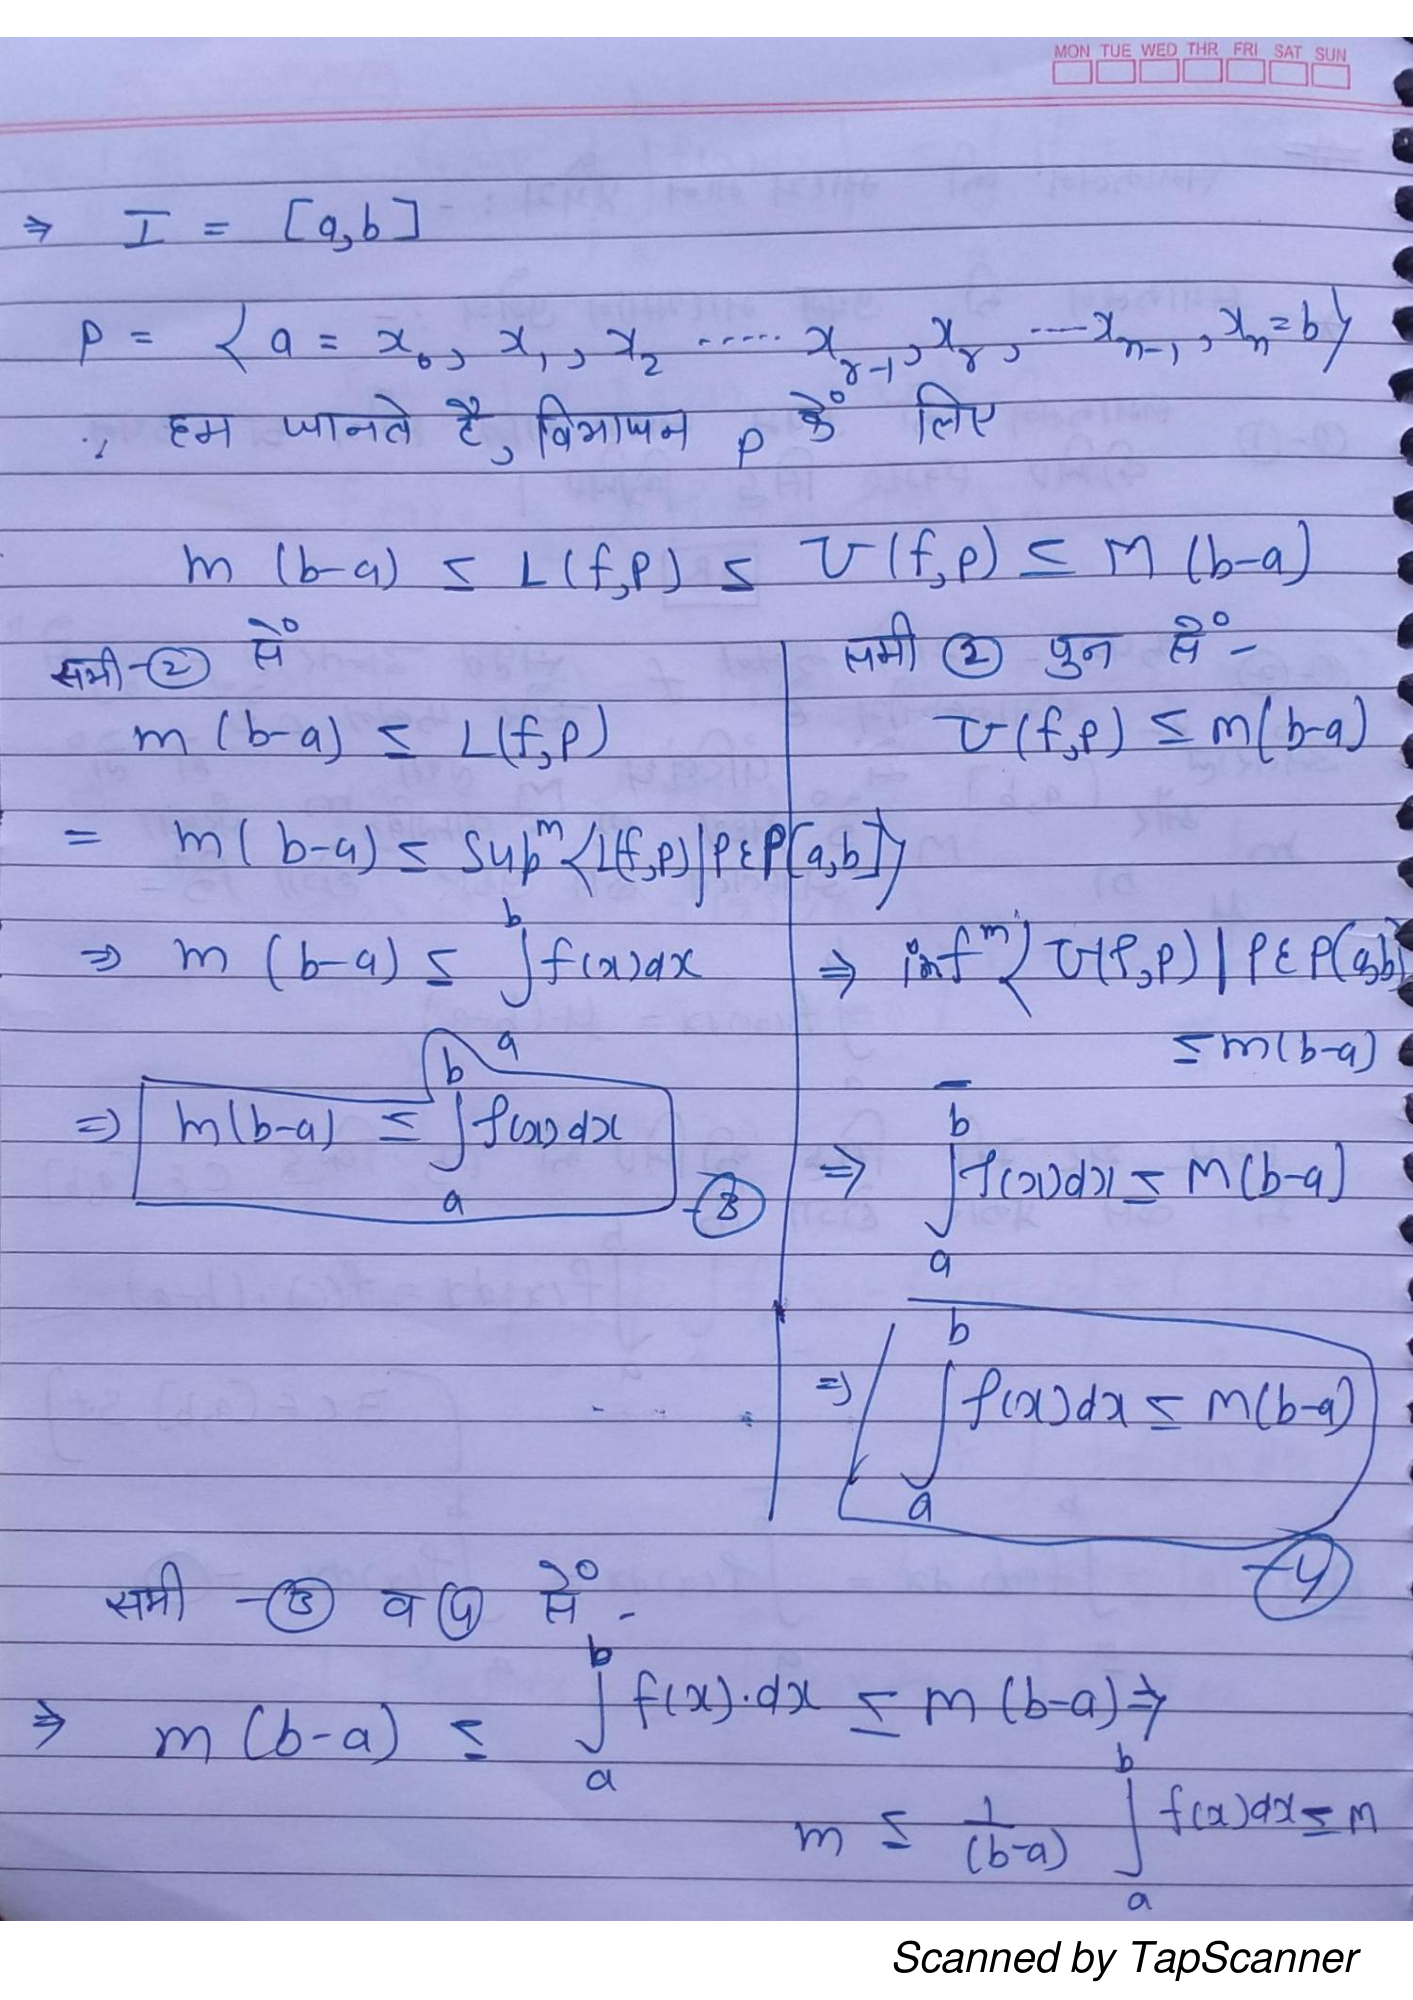 MON TUE WED THR FRI SAT SUN
⇒ I = [a,b]
P = { a = x₀, x₁, x₂ ..... xᵣ₋₁, xᵣ, ---- xₙ₋₁, xₙ = b}
∵ हम जानते है, विभाजन P के० लिए
m (b-a) ≤ L(f,P) ≤ U(f,P) ≤ M (b-a)
समी-② से०
m (b-a) ≤ L(f,P)
= m( b-a) ≤ Supᵐ {L(f,P)|P ε P[a,b]}
⇒ m (b-a) ≤ ∫ₐᵇ f(x)dx
⇒ m(b-a) ≤ ∫ₐᵇ f(x) dx -③
समी ② पुन से० -
U(f,P) ≤ M(b-a)
⇒ infᵐ { U(f,P) | P ε P(a,b]
≤ M(b-a)
⇒ ∫ₐᵇ̄ f(x)dx ≤ M(b-a)
⇒ ∫ₐᵇ f(x)dx ≤ M(b-a)
-④
समी -③ व ④ से० -
⇒ m (b-a) ≤ ∫ₐᵇ f(x).dx ≤ M (b-a) ⇒
m ≤ 1/(b-a) ∫ₐᵇ f(x)dx ≤ M
Scanned by TapScanner